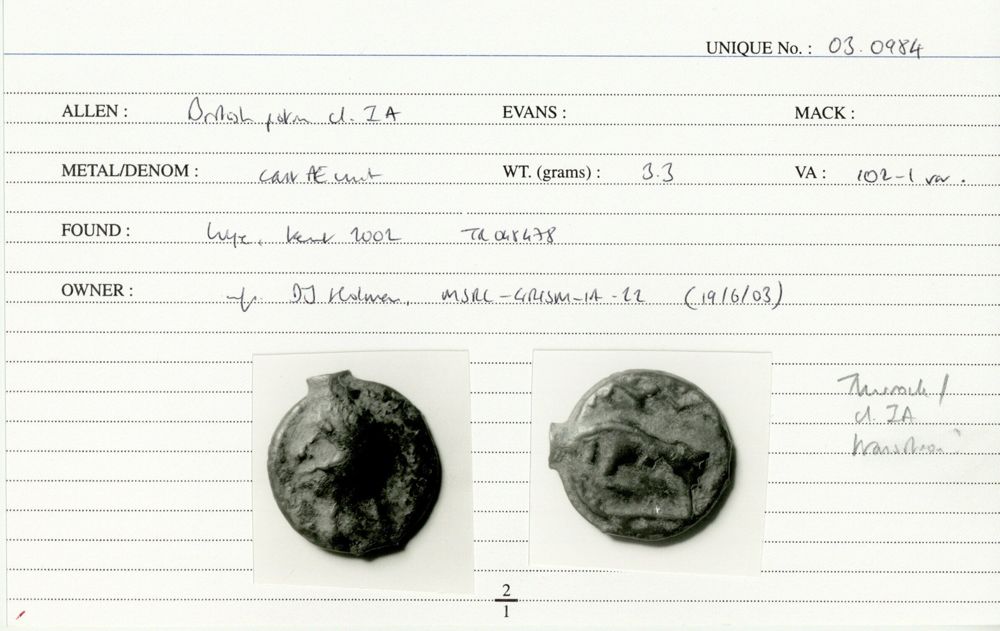 UNIQUE No. : 03.0984
ALLEN : British potin cl. IA EVANS : MACK :
METAL/DENOM : cast Æ unit WT. (grams) : 3.3 VA : 102-1 var.
FOUND : Wye, Kent 2002 TR048478
OWNER : DJ Holman, MSRC-GRISM-IA-22 (19/6/03)
Thurrock /
cl. IA
transition
2
1